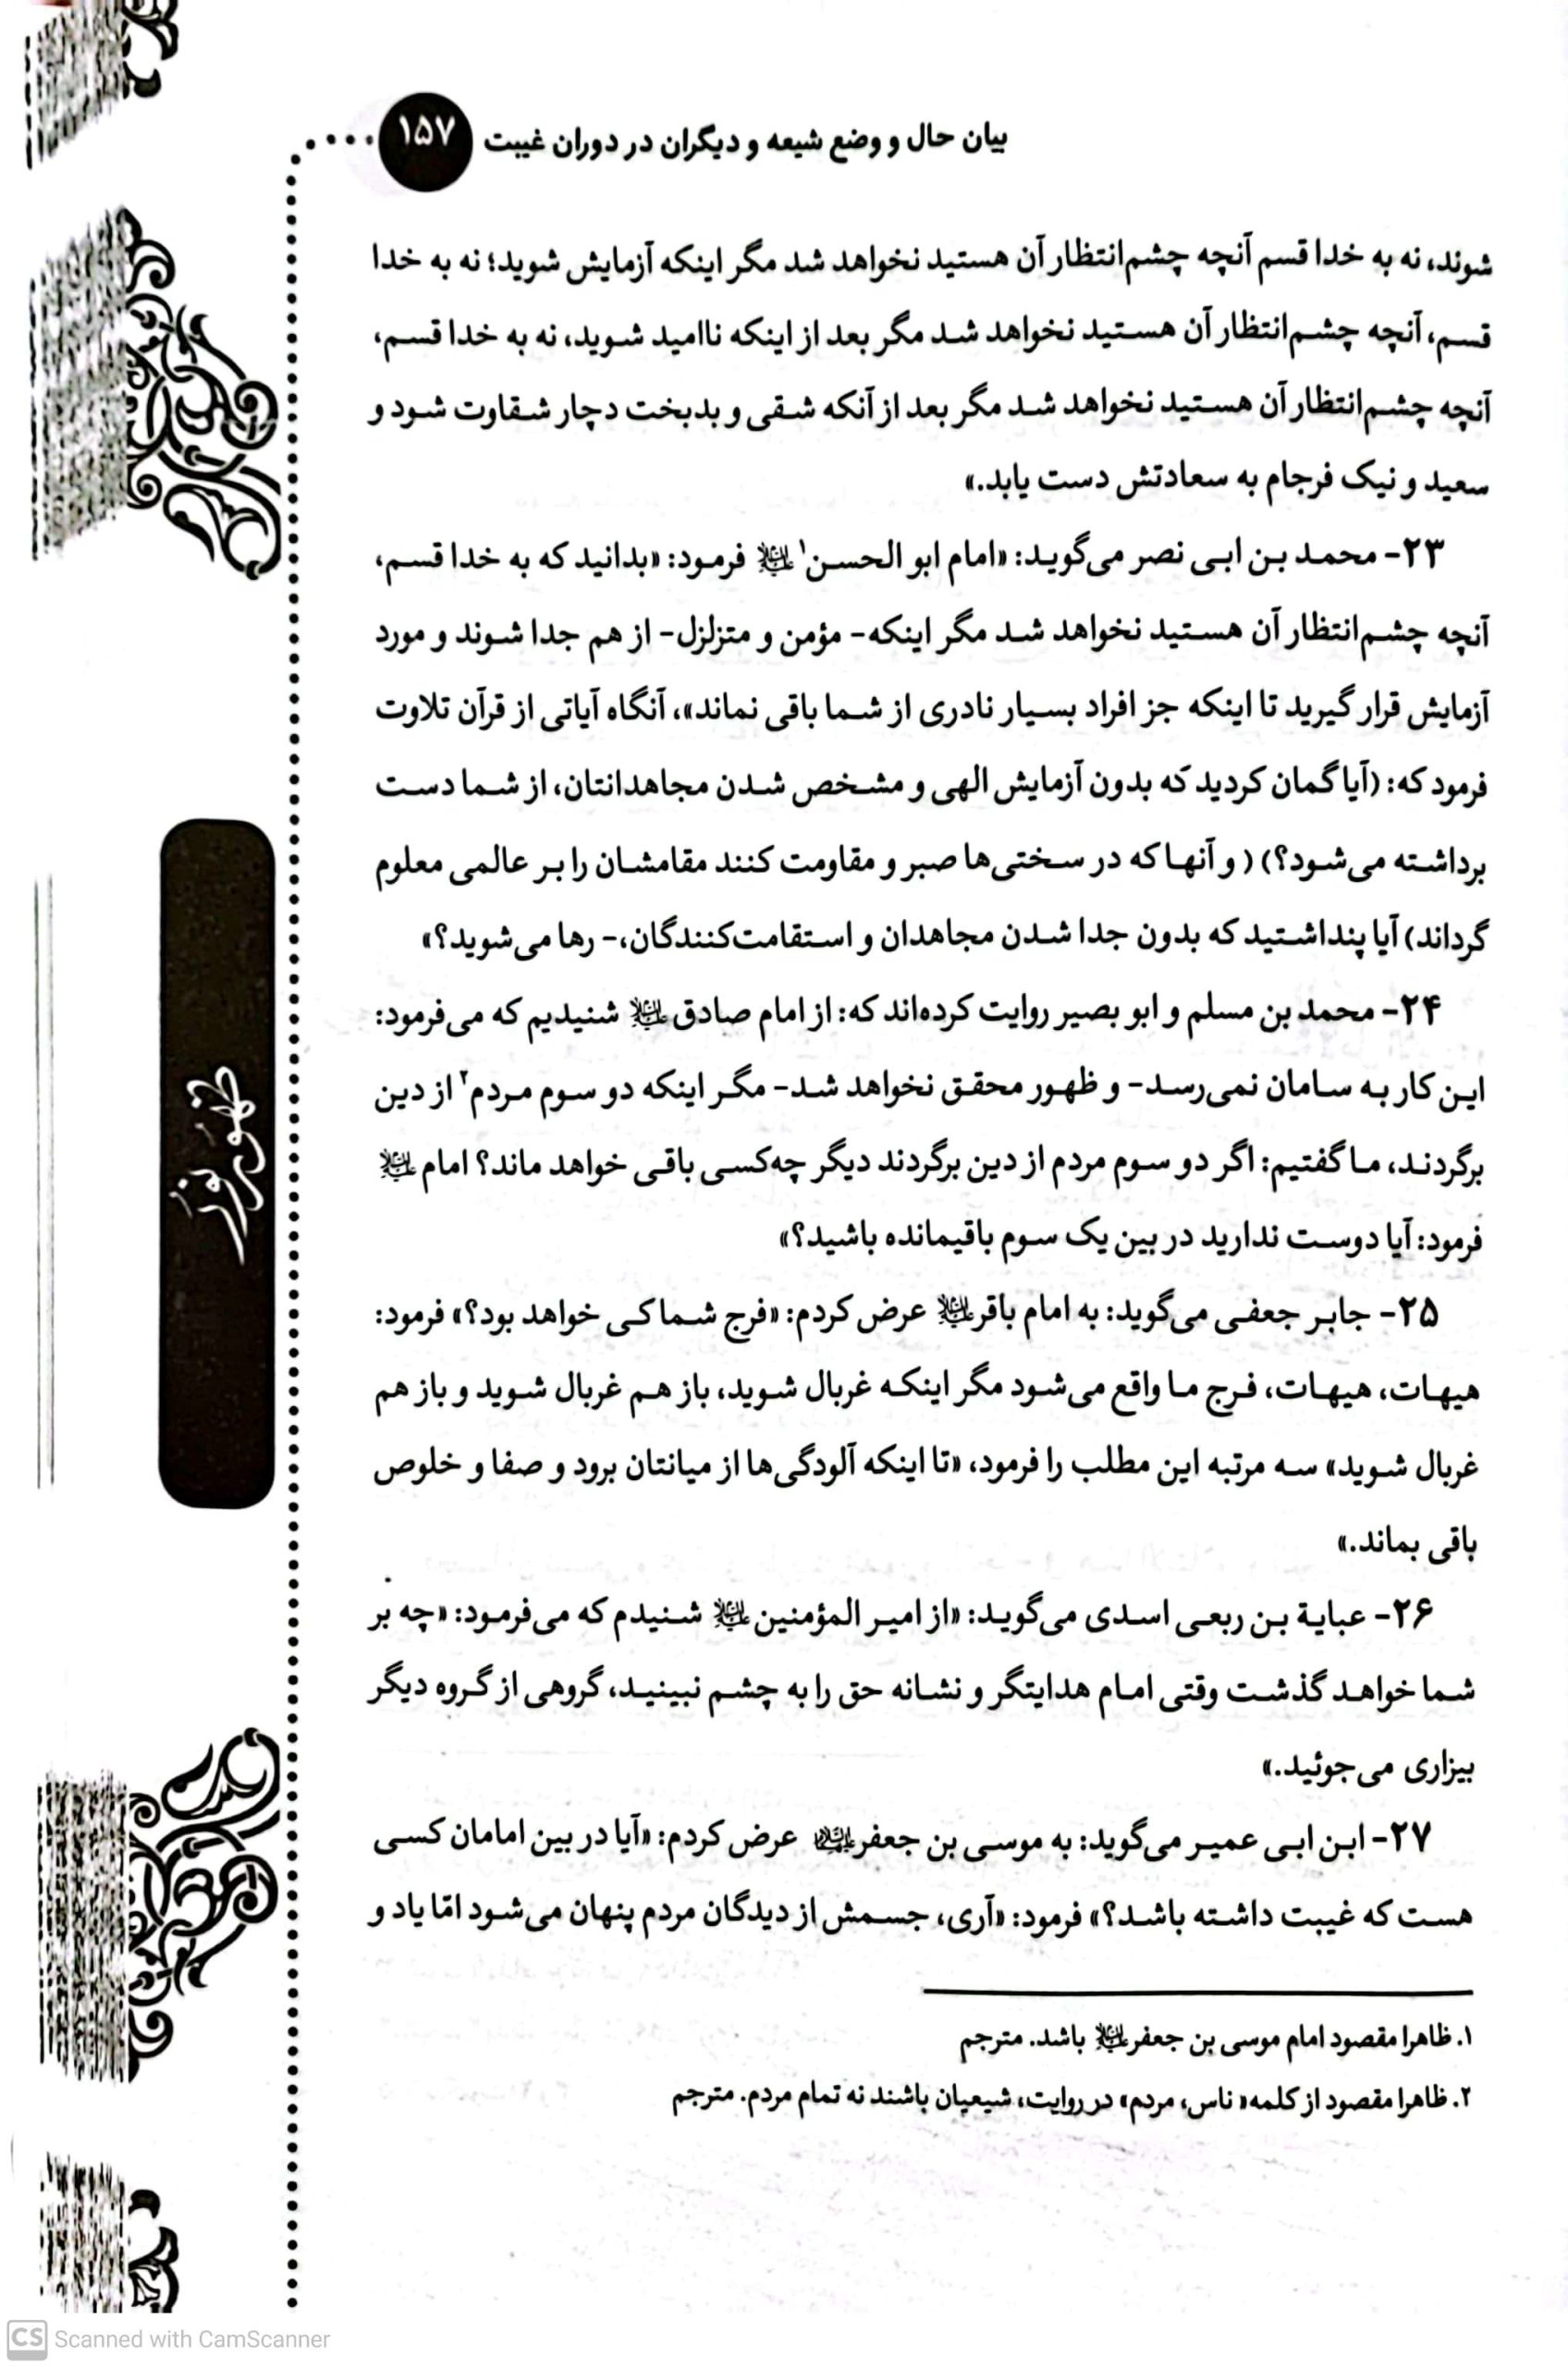 بیان حال و وضع شیعه و دیگران در دوران غیبت ۱۵۷
شوند، نه به خدا قسم آنچه چشم‌انتظار آن هستید نخواهد شد مگر اینکه آزمایش شوید؛ نه به خدا
قسم، آنچه چشم‌انتظار آن هستید نخواهد شد مگر بعد از اینکه ناامید شوید، نه به خدا قسم،
آنچه چشم‌انتظار آن هستید نخواهد شد مگر بعد از آنکه شقی و بدبخت دچار شقاوت شود و
سعید و نیک فرجام به سعادتش دست یابد.»
۲۳- محمد بن ابی نصر می‌گوید: «امام ابو الحسن۱ علیه‌السلام فرمود: «بدانید که به خدا قسم،
آنچه چشم‌انتظار آن هستید نخواهد شد مگر اینکه- مؤمن و متزلزل- از هم جدا شوند و مورد
آزمایش قرار گیرید تا اینکه جز افراد بسیار نادری از شما باقی نماند»، آنگاه آیاتی از قرآن تلاوت
فرمود که: (آیا گمان کردید که بدون آزمایش الهی و مشخص شدن مجاهدانتان، از شما دست
برداشته می‌شود؟) ( و آنها که در سختی‌ها صبر و مقاومت کنند مقامشان را بر عالمی معلوم
گرداند) آیا پنداشتید که بدون جدا شدن مجاهدان و استقامت‌کنندگان،- رها می‌شوید؟»
۲۴- محمد بن مسلم و ابو بصیر روایت کرده‌اند که: از امام صادق علیه‌السلام شنیدیم که می‌فرمود:
این کار به سامان نمی‌رسد- و ظهور محقق نخواهد شد- مگر اینکه دو سوم مردم۲ از دین
برگردند، ما گفتیم: اگر دو سوم مردم از دین برگردند دیگر چه‌کسی باقی خواهد ماند؟ امام علیه‌السلام
فرمود: آیا دوست ندارید در بین یک سوم باقیمانده باشید؟»
۲۵- جابر جعفی می‌گوید: به امام باقر علیه‌السلام عرض کردم: «فرج شما کی خواهد بود؟» فرمود:
هیهات، هیهات، فرج ما واقع می‌شود مگر اینکه غربال شوید، باز هم غربال شوید و باز هم
غربال شوید» سه مرتبه این مطلب را فرمود، «تا اینکه آلودگی‌ها از میانتان برود و صفا و خلوص
باقی بماند.»
۲۶- عبایة بن ربعی اسدی می‌گوید: «از امیر المؤمنین علیه‌السلام شنیدم که می‌فرمود: «چه بر
شما خواهد گذشت وقتی امام هدایتگر و نشانه حق را به چشم نبینید، گروهی از گروه دیگر
بیزاری می‌جوئید.»
۲۷- ابن ابی عمیر می‌گوید: به موسی بن جعفر علیهماالسلام عرض کردم: «آیا در بین امامان کسی
هست که غیبت داشته باشد؟» فرمود: «آری، جسمش از دیدگان مردم پنهان می‌شود امّا یاد و
۱. ظاهرا مقصود امام موسی بن جعفر علیه‌السلام باشد. مترجم
۲. ظاهرا مقصود از کلمه« ناس، مردم» در روایت، شیعیان باشند نه تمام مردم. مترجم
ظهور نور
CS Scanned with CamScanner